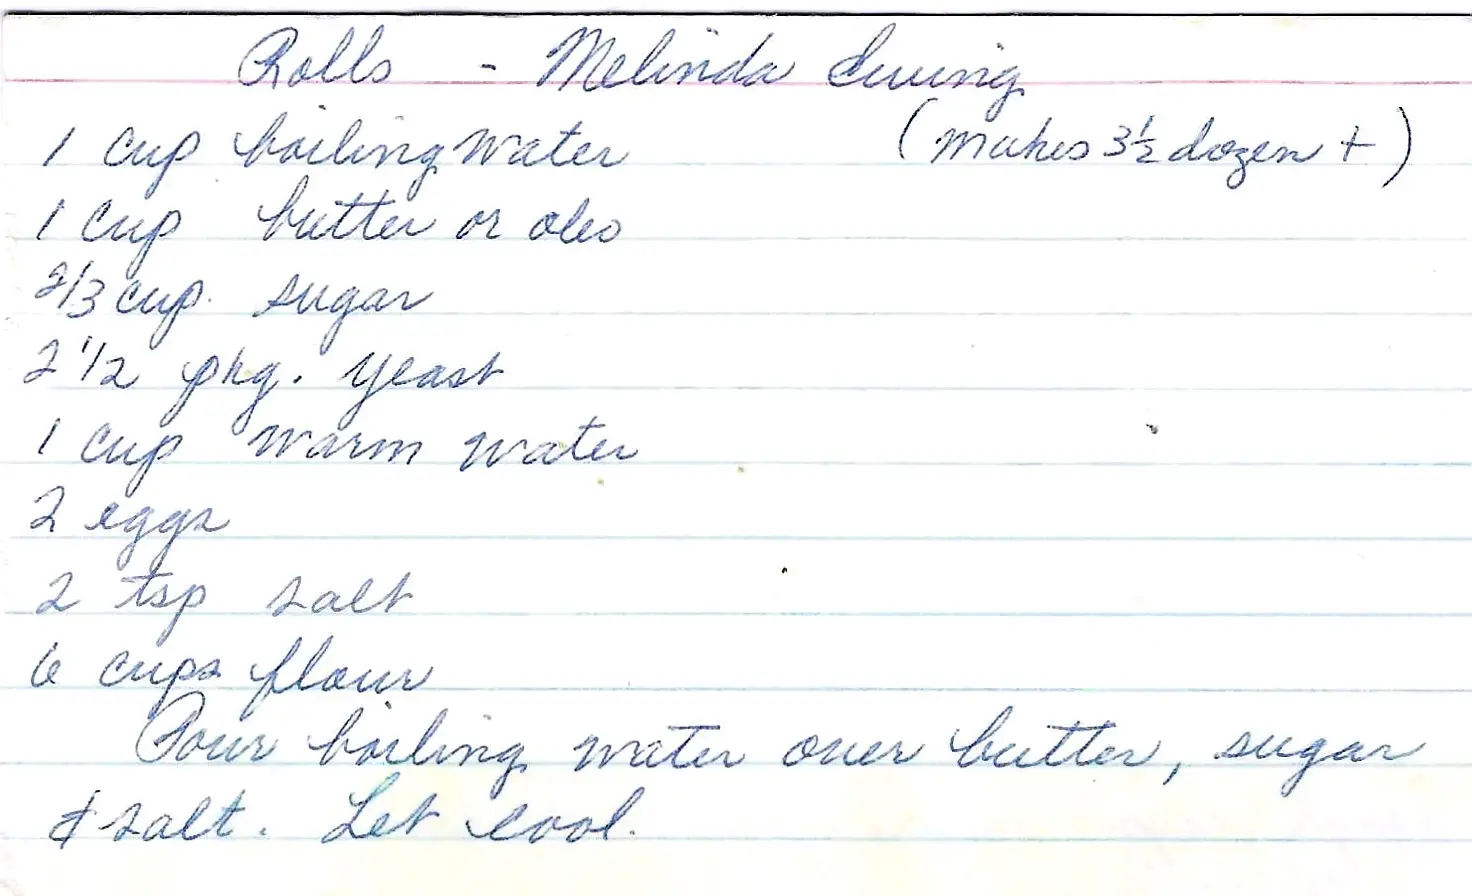 Rolls - Melinda Ewing
1 cup boiling water (makes 3 1/2 dozen +)
1 cup butter or oleo
2/3 cup sugar
2 1/2 pkg. yeast
1 cup warm water
2 eggs
2 tsp salt
6 cups flour
Pour boiling water over butter, sugar
& salt. Let cool.